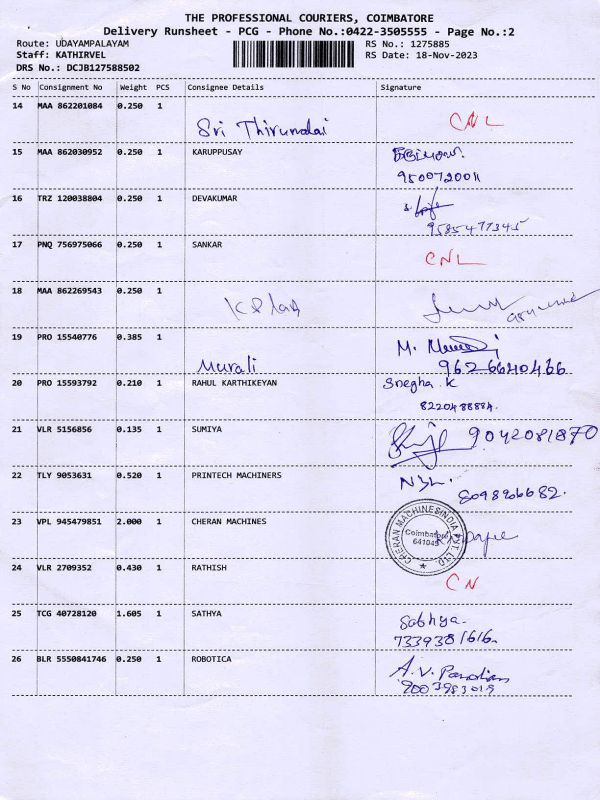 THE PROFESSIONAL COURIERS, COIMBATORE
Delivery Runsheet - PCG - Phone No.:0422-3505555 - Page No.:2
Route: UDAYAMPALAYAM RS No.: 1275885
Staff: KATHIRVEL RS Date: 18-Nov-2023
DRS No.: DCJB127588502
S No Consignment No Weight PCS Consignee Details Signature
14 MAA 862201084 0.250 1
Sri Thirumalai CNL
15 MAA 862030952 0.250 1 KARUPPUSAY
9500720011
16 TRZ 120038804 0.250 1 DEVAKUMAR
9585477345
17 PNQ 756975066 0.250 1 SANKAR
CNL
18 MAA 862269543 0.250 1
19 PRO 15540776 0.385 1 M.
Murali 9626640466
20 PRO 15593792 0.210 1 RAHUL KARTHIKEYAN Snegha K
8220488884.
21 VLR 5156856 0.135 1 SUMIYA 9042081870
22 TLY 9053631 0.520 1 PRINTECH MACHINERS
8098906682.
23 VPL 945479851 2.000 1 CHERAN MACHINES
CHERAN MACHINES INDIA PVT. LTD.
Coimbatore
641045
24 VLR 2709352 0.430 1 RATHISH
CN
25 TCG 40728120 1.605 1 SATHYA
Sathya.
7339381616.
26 BLR 5550841746 0.250 1 ROBOTICA
A.V. Pandian
9003983019